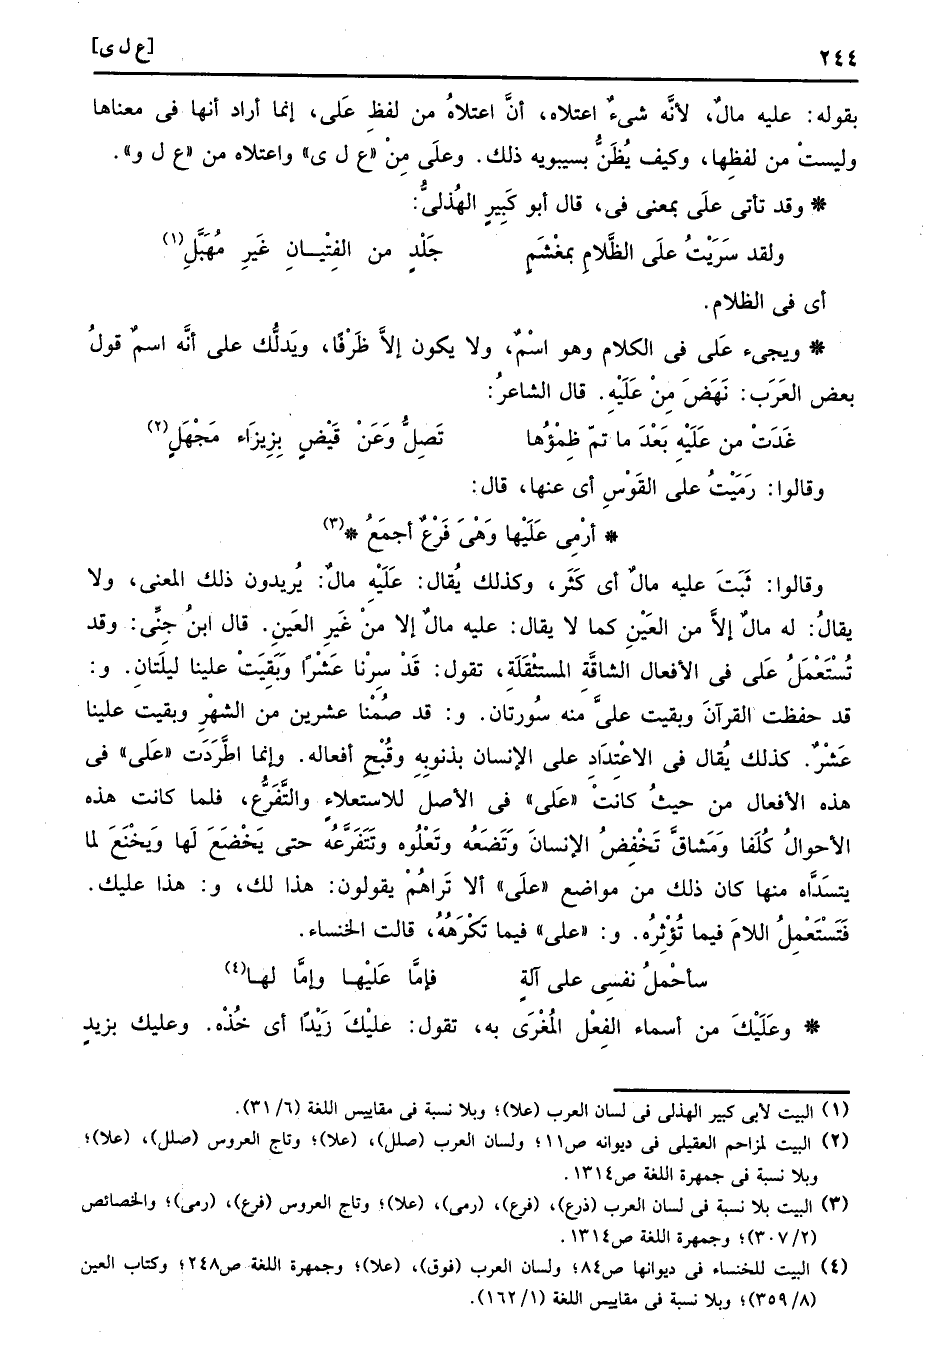 ٢٤٤ [ع ل ى]
بقوله: عليه مالٌ، لأنَّه شىءٌ اعتلاه، أنَّ اعتلاهُ من لفظِ عَلَى، إنما أراد أنها فى معناها
وليستْ من لفظِها، وكيف يُظَنُّ بسيبويه ذلك. وعلَى مِنْ «ع ل ى» واعتلاه من «ع ل و».
* وقد تأتى علَى بمعنى فى، قال أبو كَبِيرٍ الهُذلىُّ:
ولقد سَرَيْتُ علَى الظَّلامِ بمغْشَمٍ جَلْدٍ من الفِتْيــانِ غَيرِ مُهَبَّلِ(١)
أى فى الظلام.
* ويجىء عَلى فى الكلام وهو اسْمٌ، ولا يكون إلاَّ ظَرْفًا، ويَدلُّك على أنَّه اسمٌ قولُ
بعض العَرَب: نَهَضَ مِنْ عَلَيْهِ. قال الشاعرُ:
غَدَتْ من عَلَيْهِ بَعْدَ ما تمّ ظِمْؤُها تَصِلُّ وَعَنْ قَيْضٍ بِزِيزَاء مَجْهَلِ(٢)
وقالوا: رَمَيْتُ على القَوْسِ أى عنها، قال:
* أرْمِى عَلَيْها وَهْىَ فَرْعٌ أجمَعُ *(٣)
وقالوا: ثَبَتَ عليه مالٌ أى كَثَر، وكذلك يُقال: عَلَيْهِ مالٌ: يُريدون ذلك المعنى، ولا
يقالُ: له مالٌ إلاَّ من العَيْنِ كما لا يقال: عليه مالٌ إلا منْ غَيرِ العَينِ. قال ابنُ جِنِّى: وقد
تُسْتَعْمَلُ عَلى فى الأفعال الشاقَّةِ المستثْقَلَة، تقول: قَدْ سِرْنا عَشْرًا وَبَقِيَتْ علينا ليلَتان. و:
قد حفظت القرآنَ وبقيت علىَّ منه سُورتان. و: قد صُمْنا عشرين من الشهْرِ وبقيت علينا
عَشْرٌ. كذلك يُقال فى الاعْتِدَادِ على الإنسان بذنوبِه وقُبْحِ أفعاله. وإنما اطَّرَدَت «عَلَى» فى
هذه الأفعال من حيثُ كانتْ «عَلى» فى الأصل للاستعلاءِ والتَّفَرُّع، فلما كانت هذه
الأحوالُ كُلَفا وَمَشاقَّ تَخْفِضُ الإنسانَ وَتَضَعُه وتَعْلُوه وتَتَفَرَّعُه حتى يَخْضَعَ لَها ويَخْنَعَ لما
يتسَدَّاه منها كان ذلك من مواضع «علَى» ألا تَراهُمْ يقولون: هذا لك، و: هذا عليك.
فَتَسْتَعْمِلُ اللامَ فيما تُؤْثِرُه. و: «على» فيما تَكْرَهُهُ، قالت الخنساء.
سأحْملُ نفسِى على آلةٍ فإمَّا عَلَيْهــا وإمَّا لهـا(٤)
* وعَلَيْكَ من أسماء الفِعْلِ المُغْرَى به، تقول: عليْكَ زَيْدًا أى خُذْه. وعليك بزيدٍ
(١) البيت لأبى كبير الهذلى فى لسان العرب (علا)؛ وبلا نسبة فى مقاييس اللغة (٣١/٦).
(٢) البيت لمزاحم العقيلى فى ديوانه ص١١؛ ولسان العرب (صلل)، (علا)؛ وتاج العروس (صلل)، (علا)؛
وبلا نسبة فى جمهرة اللغة ص١٣١٤.
(٣) البيت بلا نسبة فى لسان العرب (ذرع)، (فرع)، (رمى)، (علا)؛ وتاج العروس (فرع)، (رمى)؛ والخصائص
(٣٠٧/٢)؛ وجمهرة اللغة ص١٣١٤.
(٤) البيت للخنساء فى ديوانها ص٨٤؛ ولسان العرب (فوق)، (علا)؛ وجمهرة اللغة ص٢٤٨؛ وكتاب العين
(٣٥٩/٨)؛ وبلا نسبة فى مقاييس اللغة (١٦٢/١).